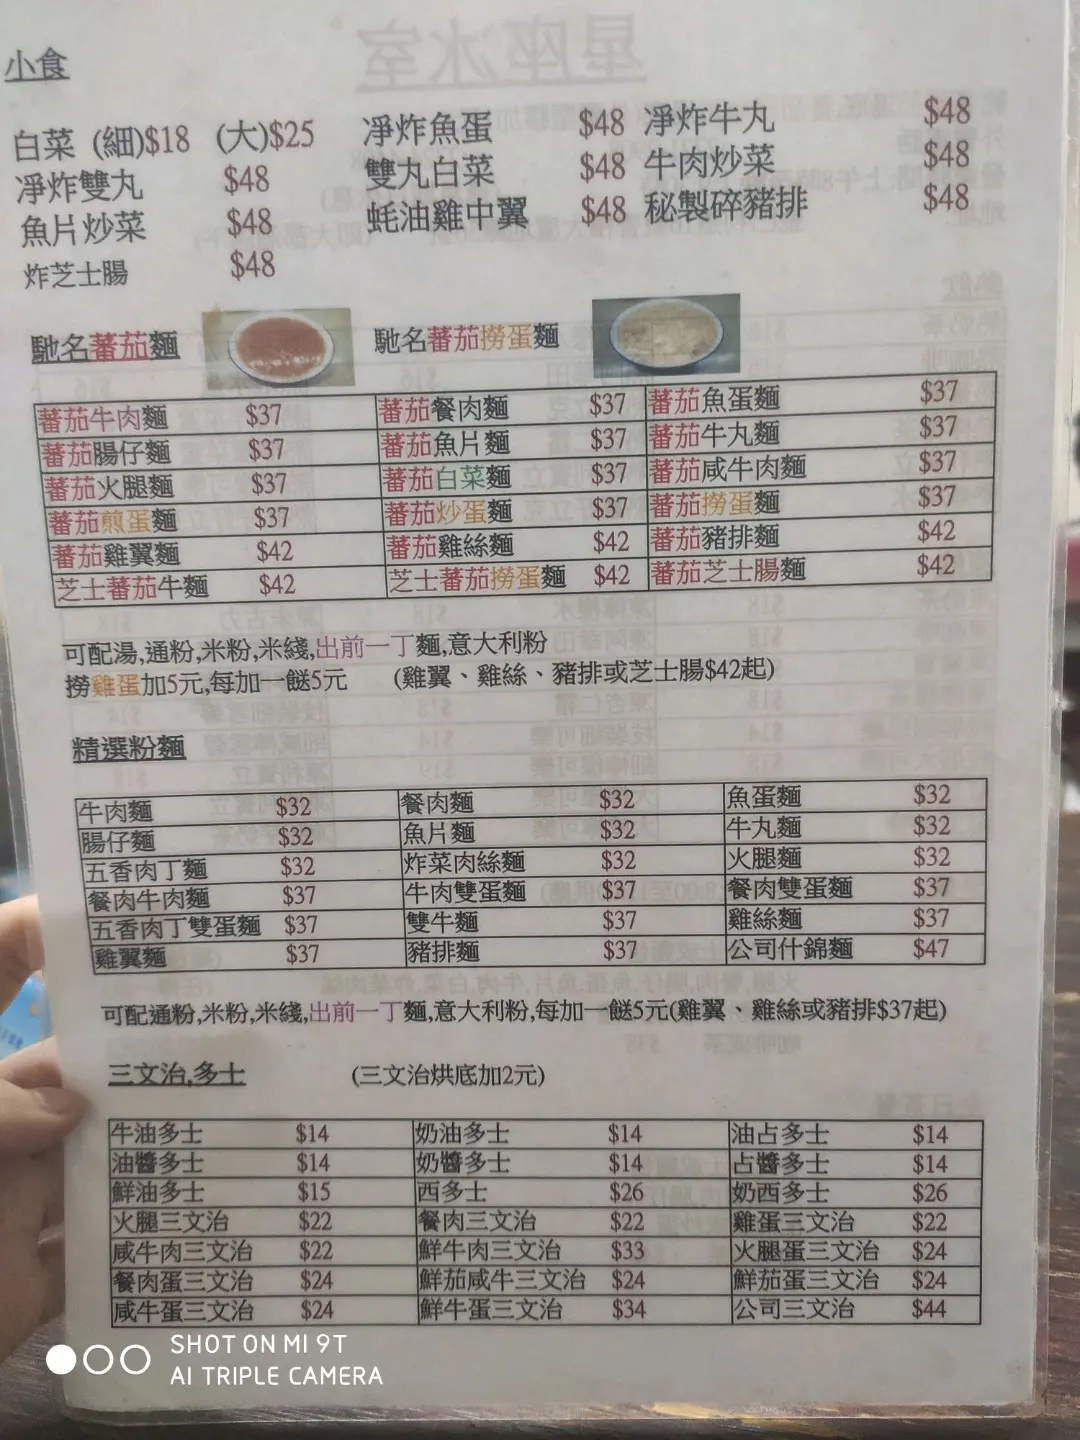 小食
白菜 (細)$18 (大)$25 凈炸魚蛋 $48 凈炸牛丸 $48
凈炸雙丸 $48 雙丸白菜 $48 牛肉炒菜 $48
魚片炒菜 $48 蚝油雞中翼 $48 秘製碎豬排 $48
炸芝士腸 $48
馳名蕃茄麵 馳名蕃茄撈蛋麵
蕃茄牛肉麵 $37 蕃茄餐肉麵 $37 蕃茄魚蛋麵 $37
蕃茄腸仔麵 $37 蕃茄魚片麵 $37 蕃茄牛丸麵 $37
蕃茄火腿麵 $37 蕃茄白菜麵 $37 蕃茄咸牛肉麵 $37
蕃茄煎蛋麵 $37 蕃茄炒蛋麵 $37 蕃茄撈蛋麵 $37
蕃茄雞翼麵 $42 蕃茄雞絲麵 $42 蕃茄豬排麵 $42
芝士蕃茄牛麵 $42 芝士蕃茄撈蛋麵 $42 蕃茄芝士腸麵 $42
可配湯,通粉,米粉,米綫,出前一丁麵,意大利粉
撈雞蛋加5元,每加一餸5元 (雞翼、雞絲、豬排或芝士腸$42起)
精選粉麵
牛肉麵 $32 餐肉麵 $32 魚蛋麵 $32
腸仔麵 $32 魚片麵 $32 牛丸麵 $32
五香肉丁麵 $32 炸菜肉絲麵 $32 火腿麵 $32
餐肉牛肉麵 $37 牛肉雙蛋麵 $37 餐肉雙蛋麵 $37
五香肉丁雙蛋麵 $37 雙牛麵 $37 雞絲麵 $37
雞翼麵 $37 豬排麵 $37 公司什錦麵 $47
可配通粉,米粉,米綫,出前一丁麵,意大利粉,每加一餸5元(雞翼、雞絲或豬排$37起)
三文治,多士 (三文治烘底加2元)
牛油多士 $14 奶油多士 $14 油占多士 $14
油醬多士 $14 奶醬多士 $14 占醬多士 $14
鮮油多士 $15 西多士 $26 奶西多士 $26
火腿三文治 $22 餐肉三文治 $22 雞蛋三文治 $22
咸牛肉三文治 $22 鮮牛肉三文治 $33 火腿蛋三文治 $24
餐肉蛋三文治 $24 鮮茄咸牛三文治 $24 鮮茄蛋三文治 $24
咸牛蛋三文治 $24 鮮牛蛋三文治 $34 公司三文治 $44
SHOT ON MI 9T
AI TRIPLE CAMERA